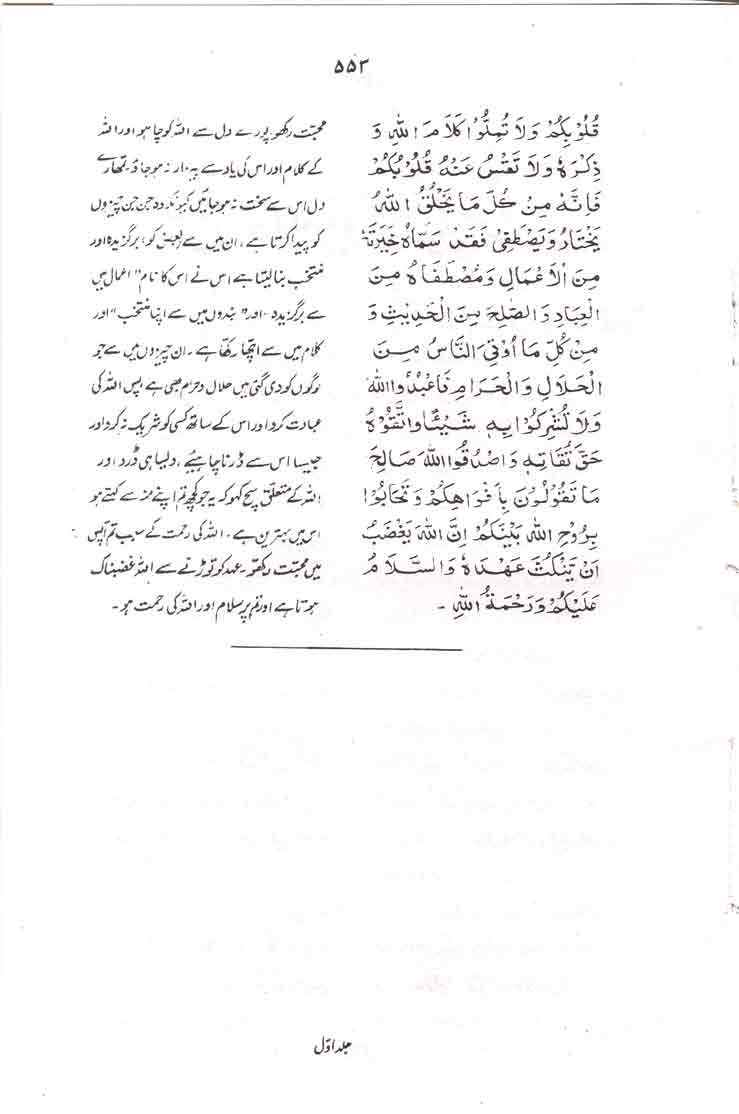 ۵۵۳
قُلُوْبِكُمْ وَلَا تُمِلُّوْا كَلَامَ اللهِ وَ
ذِكْرَهٗ وَلَا تَقْسُ عَنْهُ قُلُوْبُكُمْ
فَاِنَّهٗ مِنْ كُلِّ مَا يَخْلُقُ اللهُ
يَخْتَارُ وَيَصْطَفِىْ فَقَدْ سَمَّاهُ خِيَرَتَهٗ
مِنَ الْاَعْمَالِ وَمُصْطَفَاهُ مِنَ
الْعِبَادِ وَالصَّالِحَ مِنَ الْحَدِيْثِ وَ
مِنْ كُلِّ مَا اُوْتِىَ النَّاسُ مِنَ
الْحَلَالِ وَالْحَرَامِ فَاعْبُدُوا اللهَ
وَلَا تُشْرِكُوْا بِهٖ شَيْئًا وَاتَّقُوْهُ
حَقَّ تُقَاتِهٖ وَاصْدُقُوا اللهَ صَالِحَ
مَا تَقُوْلُوْنَ بِاَفْوَاهِكُمْ وَتَحَابُّوْا
بِرُوْحِ اللهِ بَيْنَكُمْ اِنَّ اللهَ يَغْضَبُ
اَنْ يَّنْكُثَ عَهْدَهٗ وَالسَّلَامُ
عَلَيْكُمْ وَرَحْمَةُ اللهِ ۔
محبّت رکھو پورے دل سے اللہ کو چاہو اور اللہ
کے کلام اور اس کی یاد سے بیزار نہ ہو جاؤ تمھارے
دل اس سے سخت نہ ہو جائیں کیونکہ وہ جن جن چیزوں
کو پیدا کرتا ہے، ان میں سے (بعض کو) برگزیدہ اور
منتخب بنا لیتا ہے اس نے اس کا نام "اعمال میں
سے برگزیدہ" اور "بندوں میں سے اپنا منتخب" اور
کلام میں سے اچھا رکھا ہے۔ ان چیزوں میں سے جو
لوگوں کو دی گئی ہیں حلال و حرام بھی ہے پس اللہ کی
عبادت کرو اور اس کے ساتھ کسی کو شریک نہ کرو اور
جیسا اس سے ڈرنا چاہیئے، ویسا ہی ڈرو اور
اللہ کے متعلق سچ کہو کہ یہ جو کچھ تم اپنے منہ سے کہتے ہو
اس میں بہترین ہے، اللہ کی رحمت کے سبب تم آپس
میں محبّت رکھو۔ عہد کو توڑنے سے اللہ غضبناک
ہوتا ہے اور تم پر سلام اور اللہ کی رحمت ہو۔
جلد اوّل